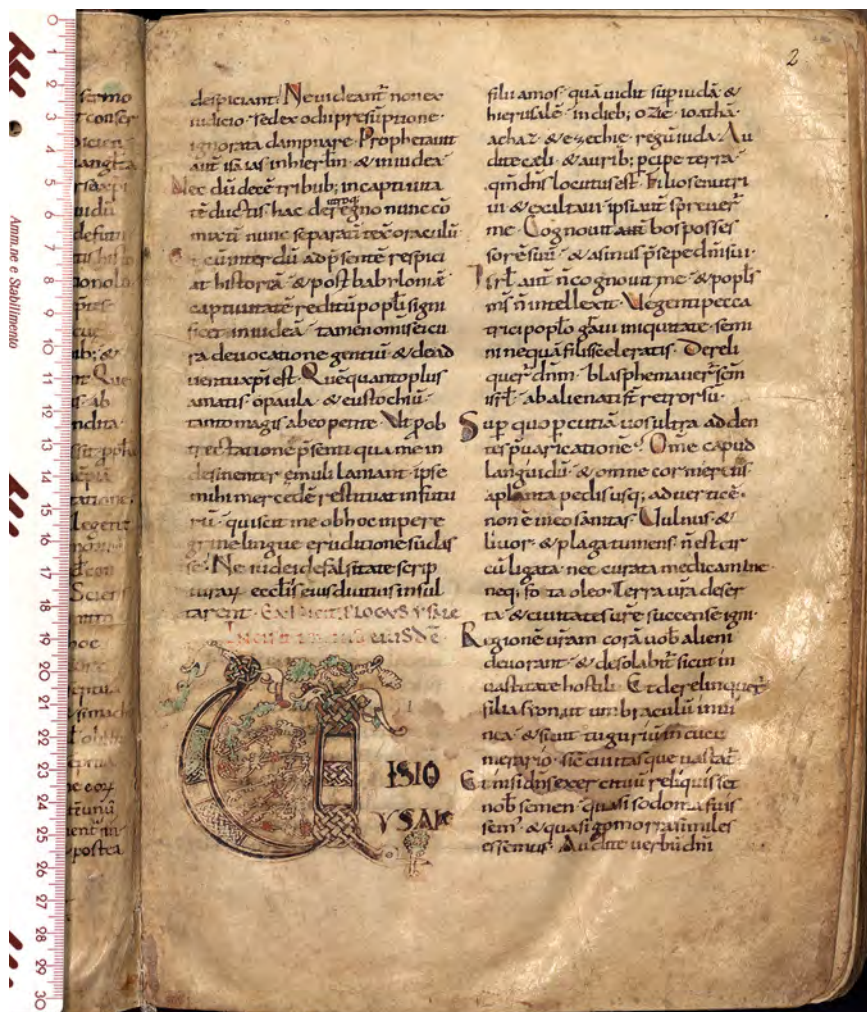 2
despiciant. Ne videant non ex
iudicio. sed ex odii presūptione.
ignorata dampnare. Prophetauit
aut isaias in hierlm & in iudea.
Nec dū decē tribub; in captiuita
tē ductis hac de regno nunc cō
mixtī nunc separatī tex oraculū
cū inter dū ad p̄sentē respici
at historiā. & post babiloniā
captiuitatē reditū popli signi
ficet in iudeā. tamen omis ei cu
ra de uocatione gentiū. & de ad
uentu xp̄i est. Quē quanto plus
amatis o paula. & eustochiū.
tanto magis ab eo petite. Ut p ob
trectatione p̄senti qua me in
desinenter emuli laniant. ipse
mihi mercedē restituat in futu
rū. qui scit me ob hoc in pere
grine lingue eruditione sudas
se. Ne iudei de falsitate scrip
turaꝝ ecclīs eius diutius insul
tarent. EXPLICIT PLOGUS YSAIE
UISIO
YSAIE
filii amos. quā uidit sup iudā &
hierusalē. in dieb; ozie. ioathā.
achaz. & ezechie. regū iuda. Au
dite cæli. & aurib; pcipe terra.
qm̄ dn̄s locutus est. Filios enutri
ui & exaltaui. ipsi aut spreuer
me. Cognouit aut bos posses
sorē suū. & asinus p̄sepe dn̄i sui.
Isrl aut n̄ cognouit me. & popls
ms n̄ intellexit. Ve genti pecca
trici poplo graui iniquitate. semi
ni nequā filiis sceleratis. Dereli
quer dn̄m. blasphemauer scm̄
isrl. ab alienati st retrorsū.
Sup quo pcutiā uos ultra. adden
tes p̄uaricatione. Ome capud
languidū. & omne cor merens.
a planta pedis usq; ad uerticē.
non ē in eo sanitas. Uulnus &
liuor. & plaga tumens. n̄ est cir
cū ligata. nec curata medicamine.
neq; fota oleo. Terra ur̄a deser
ta. & ciuitates ur̄e succense igni.
Regionē ur̄am corā uob alieni
deuorant. & desolabit sicut in
uastitate hostili. Et derelinquet
filia syon. ut umbraculū in ui
nea. & sicut tuguriū in cucu
merario. sic ciuitas que uastat.
Et nisi dn̄s exercituū reliquisset
nob semen. quasi sodoma fuis
sem. & quasi gomorra similes
essemus. Audite uerbū dn̄i
Amm.ne e Stabilimento
0
1
2
3
4
5
6
7
8
9
10
11
12
13
14
15
16
17
18
19
20
21
22
23
24
25
26
27
28
29
30